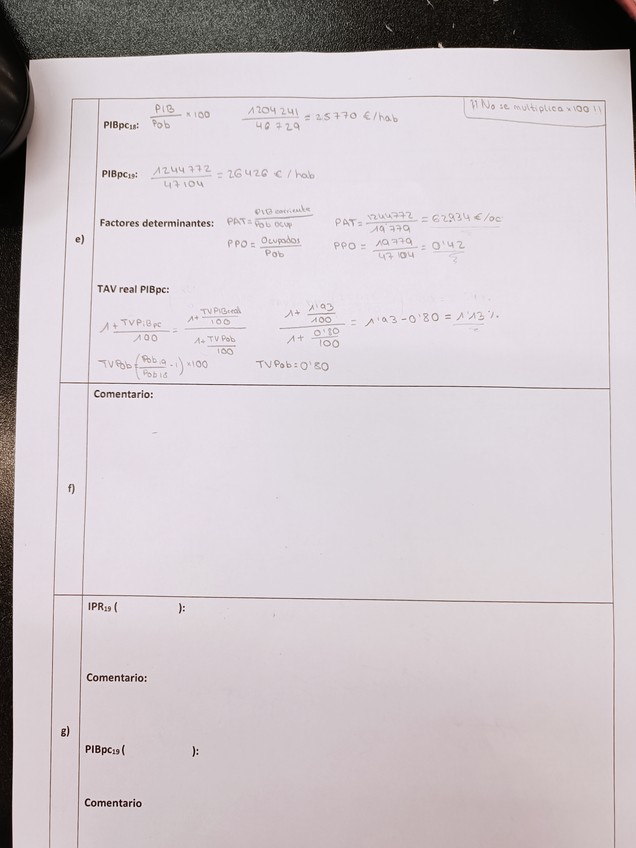 PIBpc18: PIB/Pob × 100 1204 241/46 729 = 25770 €/hab !! No se multiplica x100 !!
PIBpc19: 1244 772/47 104 = 26426 € / hab
e)
Factores determinantes: PAT = PIB corriente/Pob ocup PAT = 1244772/19 779 = 62934 €/oc
PPO = Ocupados/Pob PPO = 19 779/47 104 = 0'42
TAV real PIBpc:
1 + TVPIBpc/100 = 1+ TVPIBreal/100 / 1+ TVPob/100 1+ 1'93/100 / 1+ 0'80/100 = 1'93 - 0'80 = 1'13 %
TVPob = (Pob19/Pob18 - 1) × 100 TVPob = 0'80
f)
Comentario:
g)
IPR19 ( ):
Comentario:
PIBpc19 ( ):
Comentario